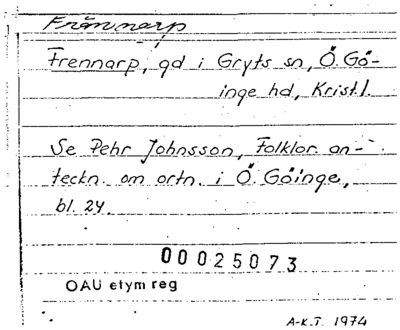 Frännarp
Frennarp, gd i Gryts sn, Ö. Gö-
inge hd, Kristl.
Se Pehr Johnsson, Folklor. an-
teckn. om ortn. i Ö. Göinge,
bl. 24.
00025073
OAU etym reg
A-K.T. 1974